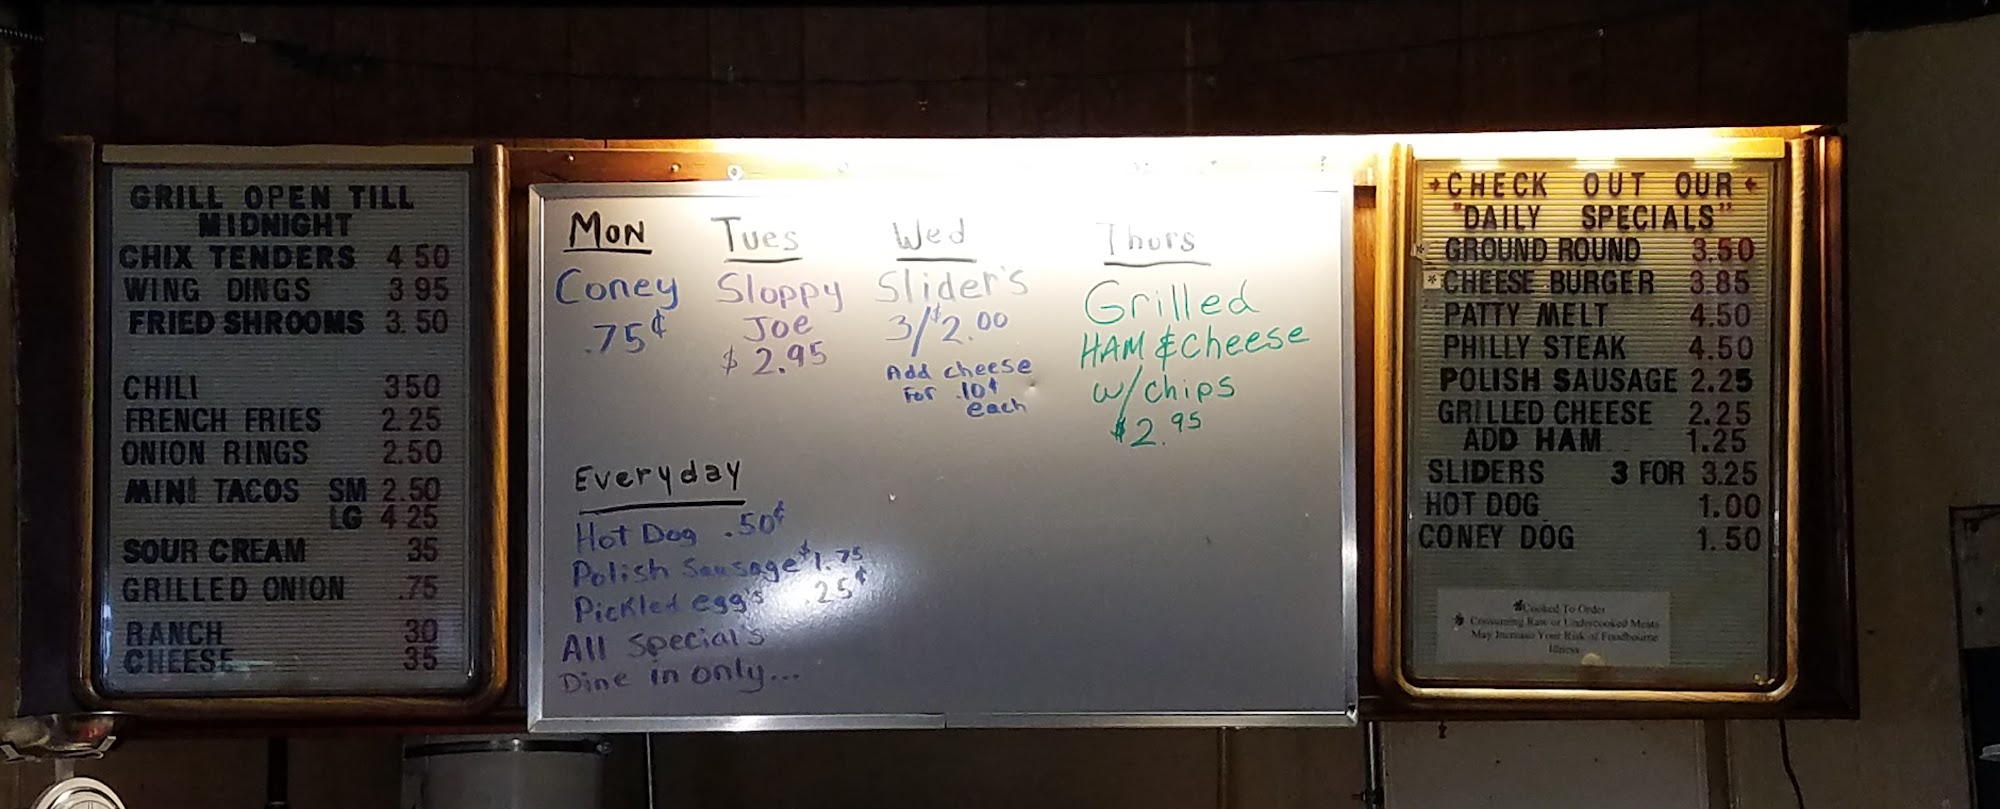 GRILL OPEN TILL
MIDNIGHT
CHIX TENDERS 4 50
WING DINGS 3 95
FRIED SHROOMS 3.50
CHILI 3 50
FRENCH FRIES 2.25
ONION RINGS 2.50
MINI TACOS SM 2.50
LG 4 25
SOUR CREAM 35
GRILLED ONION .75
RANCH 30
CHEESE 35
Mon
Coney
.75¢
Tues
Sloppy
Joe
$2.95
Wed
Slider's
3/$2.00
Add cheese
For .10¢
each
Thurs
Grilled
HAM & Cheese
w/chips
$2.95
Everyday
Hot Dog .50¢
Polish Sausage $1.75
Pickled egg's .25¢
All Special's
Dine in only...
CHECK OUT OUR
"DAILY SPECIALS"
* GROUND ROUND 3.50
* CHEESE BURGER 3.85
PATTY MELT 4.50
PHILLY STEAK 4.50
POLISH SAUSAGE 2.25
GRILLED CHEESE 2.25
ADD HAM 1.25
SLIDERS 3 FOR 3.25
HOT DOG 1.00
CONEY DOG 1.50
*Cooked To Order
* Consuming Raw or Undercooked Meats
May Increase Your Risk of Foodbourne
Illness